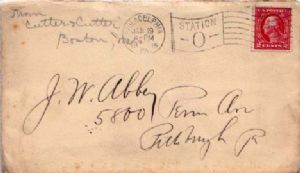 From
Cutter & Cutter
Boston, Mass
PHILADELPHIA
JAN 19
PM
PA.
STATION
-O-
U.S. POSTAGE
2 CENTS 2
J. W. Abbey
5800 Penn Av
Pittsburgh Pa